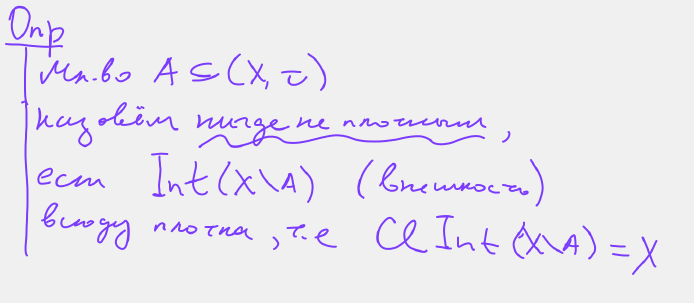 Опр
Мн.во A ⊆ (X, τ)
назовём нигде не плотным,
если Int(X\A) (внешность)
всюду плотна, т.е Cl Int(X\A) = X